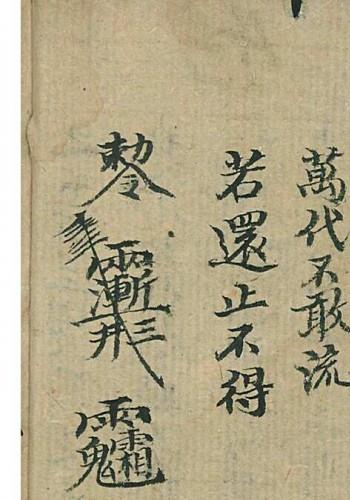 萬代不敢流
若還止不得
敕令